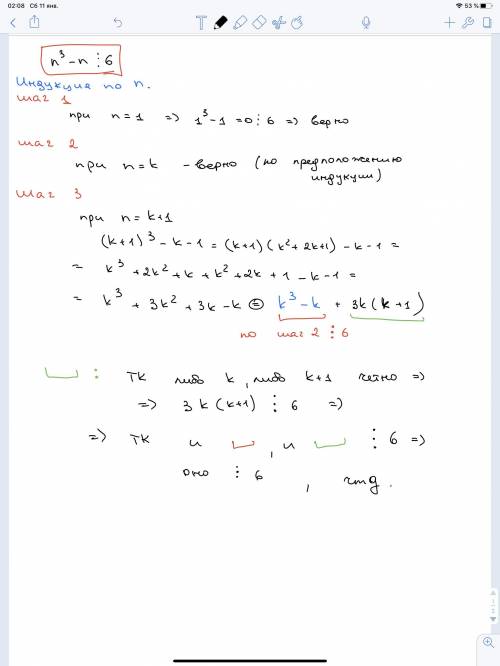 02:08 Сб 11 янв.
53 %
n³ - n ⋮ 6
Индукция по n.
шаг 1
при n = 1 => 1³ - 1 = 0 ⋮ 6 => верно
шаг 2
при n = k - верно (по предположению
индукции)
шаг 3
при n = k+1
(k+1)³ - k - 1 = (k+1)(k² + 2k+1) - k - 1 =
= k³ + 2k² + k + k² + 2k + 1 - k - 1 =
= k³ + 3k² + 3k - k = k³ - k + 3k(k+1)
по шаг 2 ⋮ 6
: тк либо k, либо k+1 четно =>
=> 3k(k+1) ⋮ 6 =>
=> тк и , и ⋮ 6 =>
оно ⋮ 6, чтд.